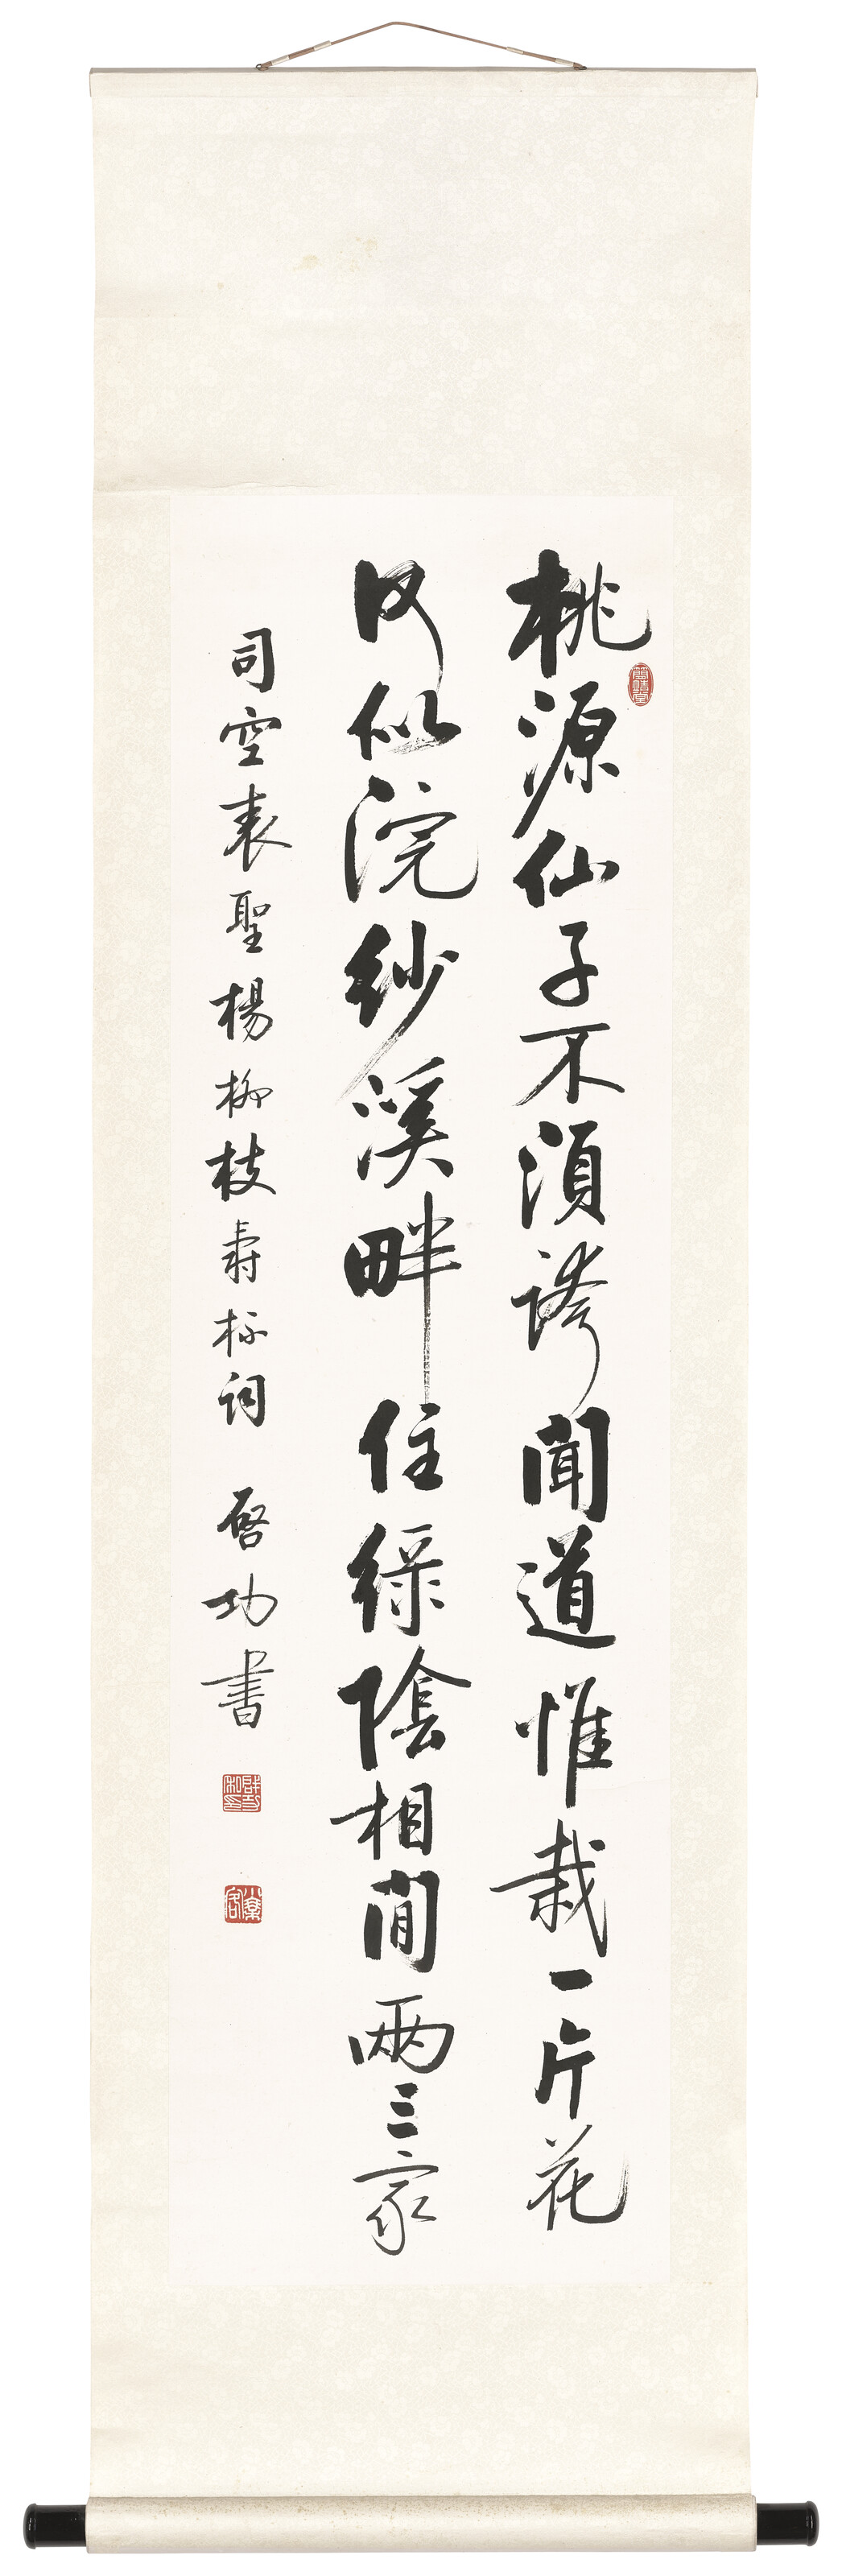 桃源仙子不須誇聞道惟栽一片花
何似浣紗溪畔住綠陰相間兩三家
司空表聖楊柳枝壽杯詞 啓功書